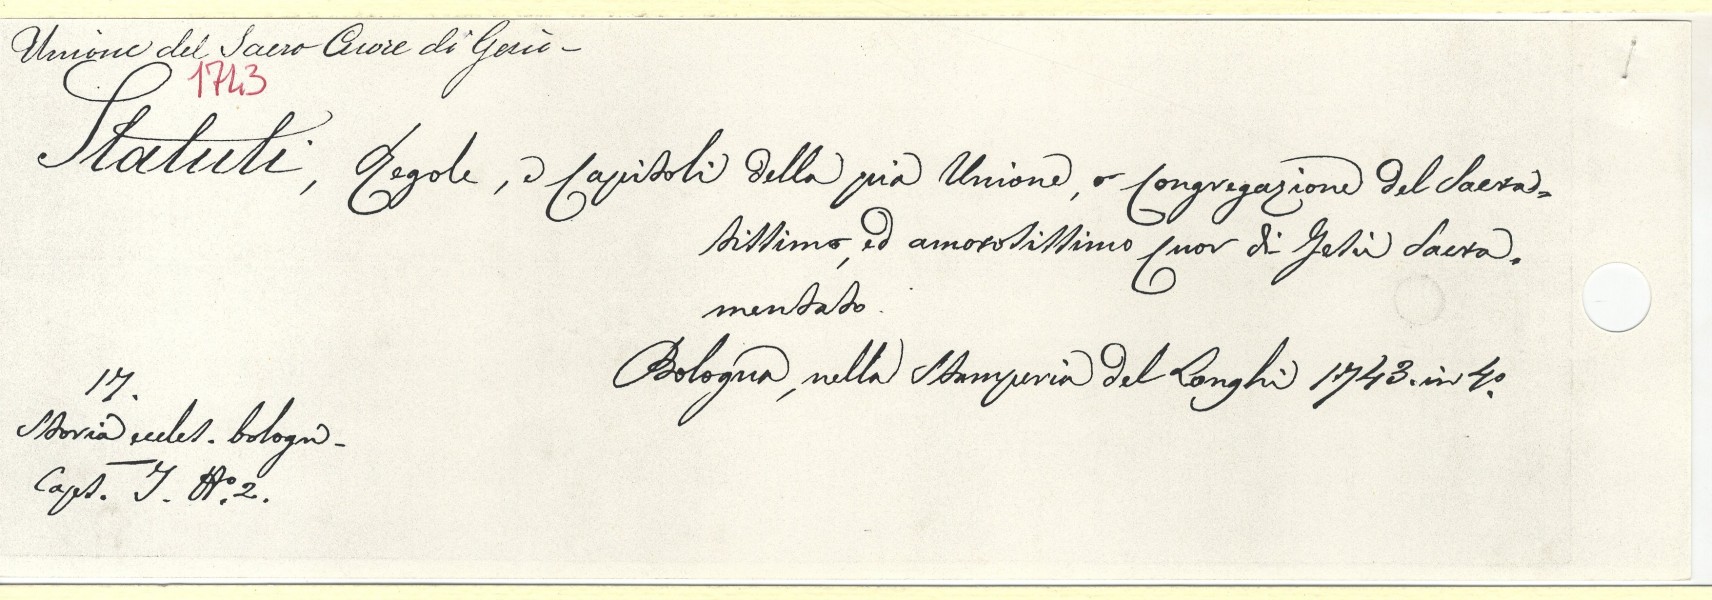 Unione del Sacro Cuore di Gesù -
1743
Statuti, Regole, e Capitoli della pia Unione, o Congregazione del Sacra=
tissimo, ed amorosissimo Cuor di Gesù Sacra.
mentato.
Bologna, nella Stamperia del Longhi 1743. in 4.º
17.
Storia eccles. bologn.
Caps. I. Nº. 2.